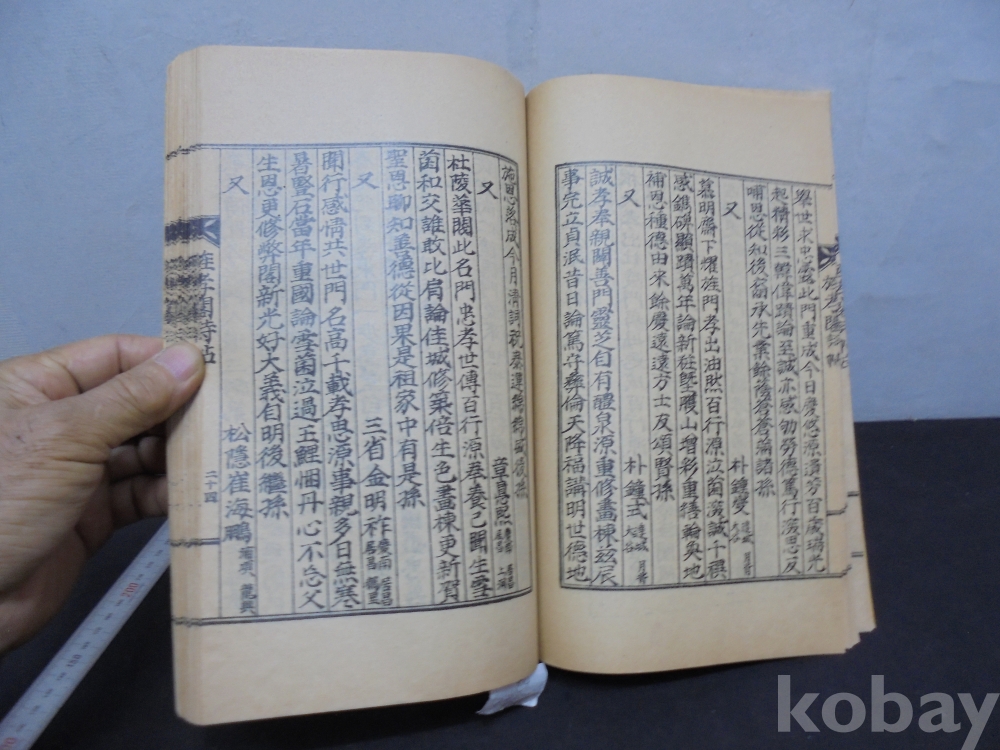 擧世求忠孝此門重成今日慶悠源流芳百歲瑞光
起精彩三韓偉蹟論至誠亦感劬勞德篤行深思反
哺恩從知後裔承先業餘蔭蒼蒼篇諸孫
又 朴鍾燮
舊明齋下耀旌門孝出油然百行源泣菌深誠千禩
感鐫碑顯蹟萬年論新粧墍雘山增彩重繕輪奐地
補恩種德由來餘慶遠遠方士友頌賢孫
又 朴鍾式
誠孝奉親闢善門靈芝自有醴泉源重修畫棟玆辰
事完立貞珉昔日論篤守彝倫天降福講明世德地
施恩落成今月淸詞祝
又 章昌熙
杜陵華閥此名門忠孝世傳百行源奉養已聞生雪
菌和交誰敢比肩論佳城修築倍生色畫棟更新賀
聖恩聊知善德從因果是祖家中有是孫
又 三省金明祚
聞行感情共世門名高千載孝思源事親多日無寒
暑竪石當年重國論雪菌泣過王鯉悃丹心不忘父
生恩更修弊閣新光好大義自明後繼孫
又 松隱崔海鵬
旌孝閣詩帖
二十四
kobay